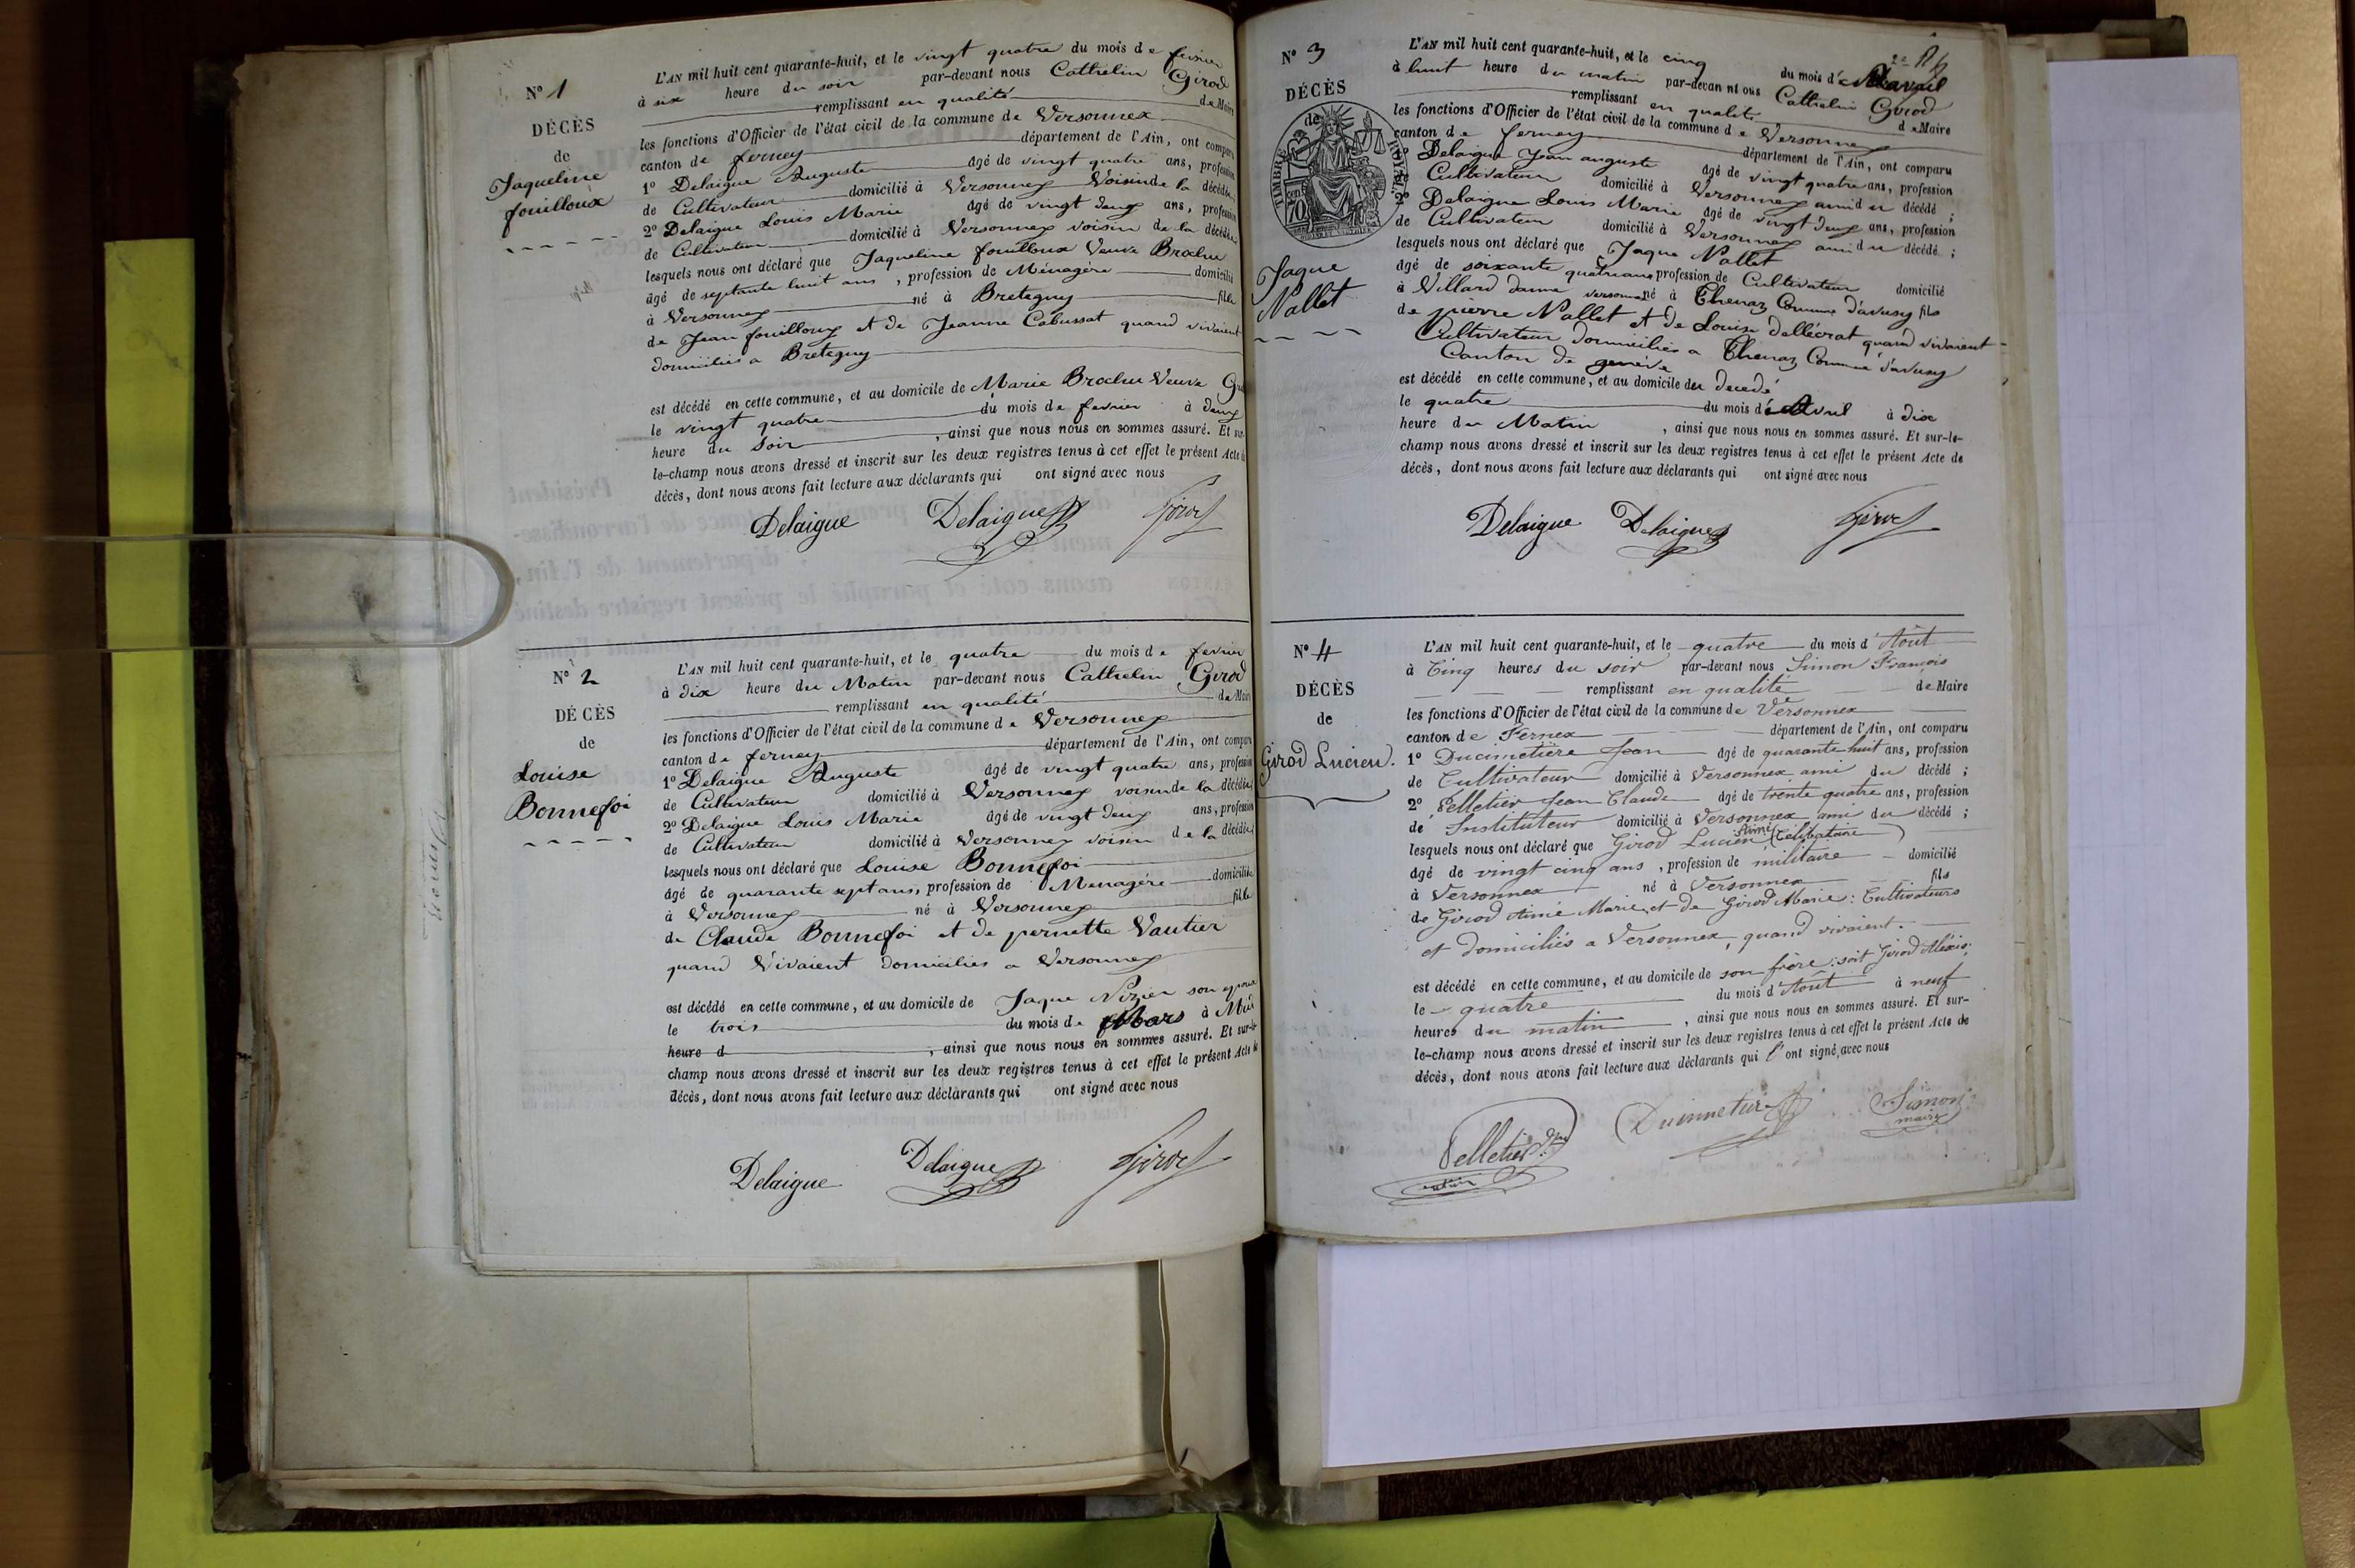 N° 1
DÉCÈS
de
Jaqueline
fouilloux
L'AN mil huit cent quarante-huit, et le vingt quatre du mois de fevrier
à six heure du soir par-devant nous Cathelin Girod
remplissant en qualité de Maire
les fonctions d'Officier de l'état civil de la commune de Versonnex
canton de ferney département de l'Ain, ont comparu
1° Delaigue Auguste âgé de vingt quatre ans, profession
de Cultivateur domicilié à Versonnex Voisin de la décédée
2° Delaigue Louis Marie âgé de vingt deux ans, profession
de Cultivateur domicilié à Versonnex voisin de la décédée
lesquels nous ont déclaré que Jaqueline fouilloux Veuve Brochu
âgé de septante huit ans, profession de Ménagère domicilié
à Versonnex né à Bretegny fille
de Jean fouilloux et de Jeanne Cabussat quand vivaient
domiciliés a Bretegny
est décédé en cette commune, et au domicile de Marie Brochu Veuve
le vingt quatre du mois de fevrier à deux
heure du Soir, ainsi que nous nous en sommes assuré. Et sur-
le-champ nous avons dressé et inscrit sur les deux registres tenus à cet effet le présent Acte de
décès, dont nous avons fait lecture aux déclarants qui ont signé avec nous
Delaigue Delaigue Girod
N° 2
DÉCÈS
de
Louise
Bonnefoi
L'AN mil huit cent quarante-huit, et le quatre du mois de fevrier
à dix heure du Matin par-devant nous Cathelin Girod
remplissant en qualité de Maire
les fonctions d'Officier de l'état civil de la commune de Versonnex
canton de ferney département de l'Ain, ont comparu
1° Delaigue Auguste âgé de vingt quatre ans, profession
de Cultivateur domicilié à Versonnex voisin de la décédée
2° Delaigue Louis Marie âgé de vingt deux ans, profession
de Cultivateur domicilié à Versonnex voisin de la décédée
lesquels nous ont déclaré que Louise Bonnefoi
âgé de quarante sept ans, profession de Menagére domiciliée
à Versonnex né à Versonnex fille
de Claude Bonnefoi et de pernette Vautier
quand Vivaient domiciliés a Versonnex
est décédé en cette commune, et au domicile de Jaque Nizier son epoux
le trois du mois de Mars à Midi
heure d, ainsi que nous nous en sommes assuré. Et sur-le-
champ nous avons dressé et inscrit sur les deux registres tenus à cet effet le présent Acte de
décès, dont nous avons fait lecture aux déclarants qui ont signé avec nous
Delaigue Delaigue Girod
N° 3
DÉCÈS
de
TIMBRE ROYAL
70
Jaque
Nallet
L'AN mil huit cent quarante-huit, et le cinq du mois d'avril
à huit heure du matin par-devant nous Cathelin Girod
remplissant en qualité de Maire
les fonctions d'Officier de l'état civil de la commune de Versonnex
canton de ferney département de l'Ain, ont comparu
1° Delaigue Jean auguste âgé de vingt quatre ans, profession
de Cultivateur domicilié à Versonnex ami du décédé;
2° Delaigue Louis Marie âgé de vingt deux ans, profession
de Cultivateur domicilié à Versonnex ami du décédé;
lesquels nous ont déclaré que Jaque Nallet
âgé de soixante quatre ans profession de Cultivateur domicilié
à Villard dame versonnex né à Thenaz Commune d'avusy fils
de pierre Nallet et de Louise dellécrat quand vivaient
Cultivateur domiciliés a Chenaz Commune d'avusy
Canton de genéve
est décédé en cette commune, et au domicile du decedé
le quatre du mois d'Avril à dix
heure du Matin, ainsi que nous nous en sommes assuré. Et sur-le-
champ nous avons dressé et inscrit sur les deux registres tenus à cet effet le présent Acte de
décès, dont nous avons fait lecture aux déclarants qui ont signé avec nous
Delaigue Delaigue Girod
N° 4
DÉCÈS
de
Girod Lucien.
L'AN mil huit cent quarante-huit, et le quatre du mois d'Aôut
à Cinq heures du soir par-devant nous Simon François
remplissant en qualité de Maire
les fonctions d'Officier de l'état civil de la commune de Versonnex
canton de Fernex département de l'Ain, ont comparu
1° Ducimetière Jean âgé de quarante huit ans, profession
de Cultivateur domicilié à Versonnex ami du décédé;
2° Pelletier Jean Claude âgé de trente quatre ans, profession
de Instituteur domicilié à Versonnex ami du décédé;
lesquels nous ont déclaré que Girod Lucien Aimé (Célibataire)
âgé de vingt cinq ans, profession de militaire domicilié
à Versonnex né à Versonnex fils
de Girod Aimé Marie, et de Girod Marie: Cultivateurs
et domiciliés a Versonnex, quand vivaient.
est décédé en cette commune, et au domicile de son frère: soit Girod Alexis;
le quatre du mois d'Aôut à neuf
heures du matin, ainsi que nous nous en sommes assuré. Et sur-
le-champ nous avons dressé et inscrit sur les deux registres tenus à cet effet le présent Acte de
décès, dont nous avons fait lecture aux déclarants qui l'ont signé, avec nous
Pelletier Ducimetière Simon
maire